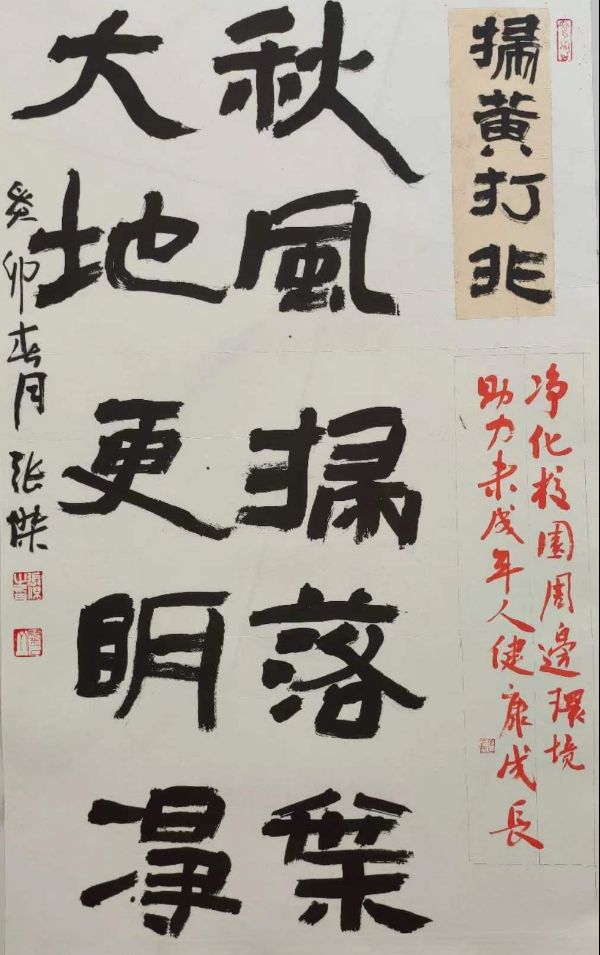 掃黄打非
净化校園周邊環境
助力未成年人健康成長
秋風掃落葉
大地更明淨
癸卯春月 張傑